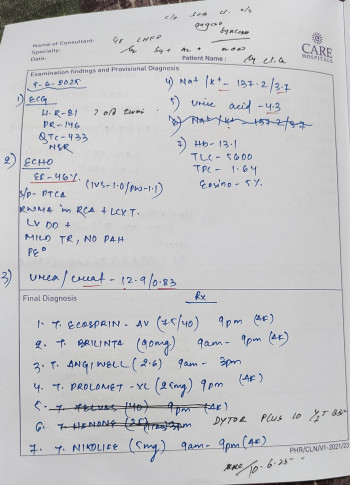 c/o SOB
Name of Consultant:
Specialty:
Date:
Patient Name:
CARE
HOSPITALS
Examination findings and Provisional Diagnosis
9-6-2025
1) ECG
H.R-81 ? old
PR-146
QTc-433
NSR
2) ECHO
EF-46%
(IVS-1.0/PW-1.1)
S/P- PTCA
RWMA in RCA + LCX T.
LV DD +
MILD TR, NO PAH
PE⁰
3) Urea/creat - 12.9/0.83
4) Na+/K+ - 137.2/3.7
5) Uric acid - 4.3
6) Na+/K+ - 137.2/3.7
7) Hb-13.1
TLC-5600
TPC-1.64
Eosino-5%
Final Diagnosis
Rx
1. T. ECOSPRIN-AV (75/40) 9pm (AF)
2. T. BRILINTA (90mg) 9am-9pm (AF)
3. T. ANGIWELL (2.6) 9am-3pm
4. T. PROLOMET-XL (25mg) 9pm (AF)
5. T. TELVAS (40) 9pm (AF)
6. T. 
DYTOR PLUS 10
7. T. NIKOLIFE (5mg) 9am-9pm (AF)
PHR/CLN/V1-2021/23
10-6-25